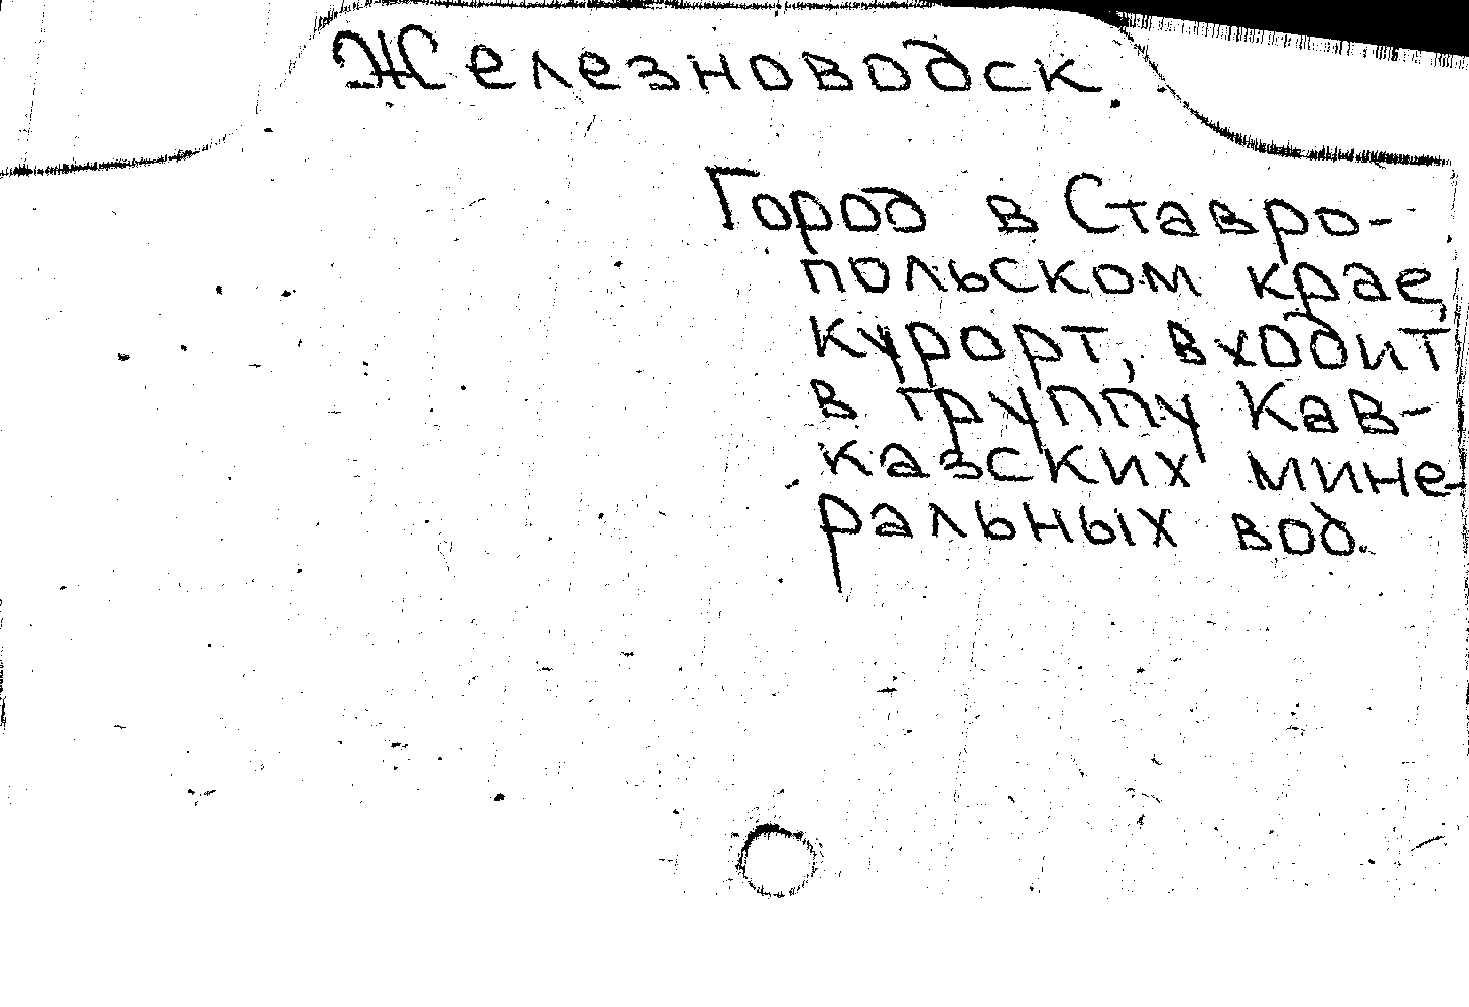 Железноводск
Город в Ставро-
польском крае,
курорт, входит
в группу Кав-
казских мине-
ральных вод.